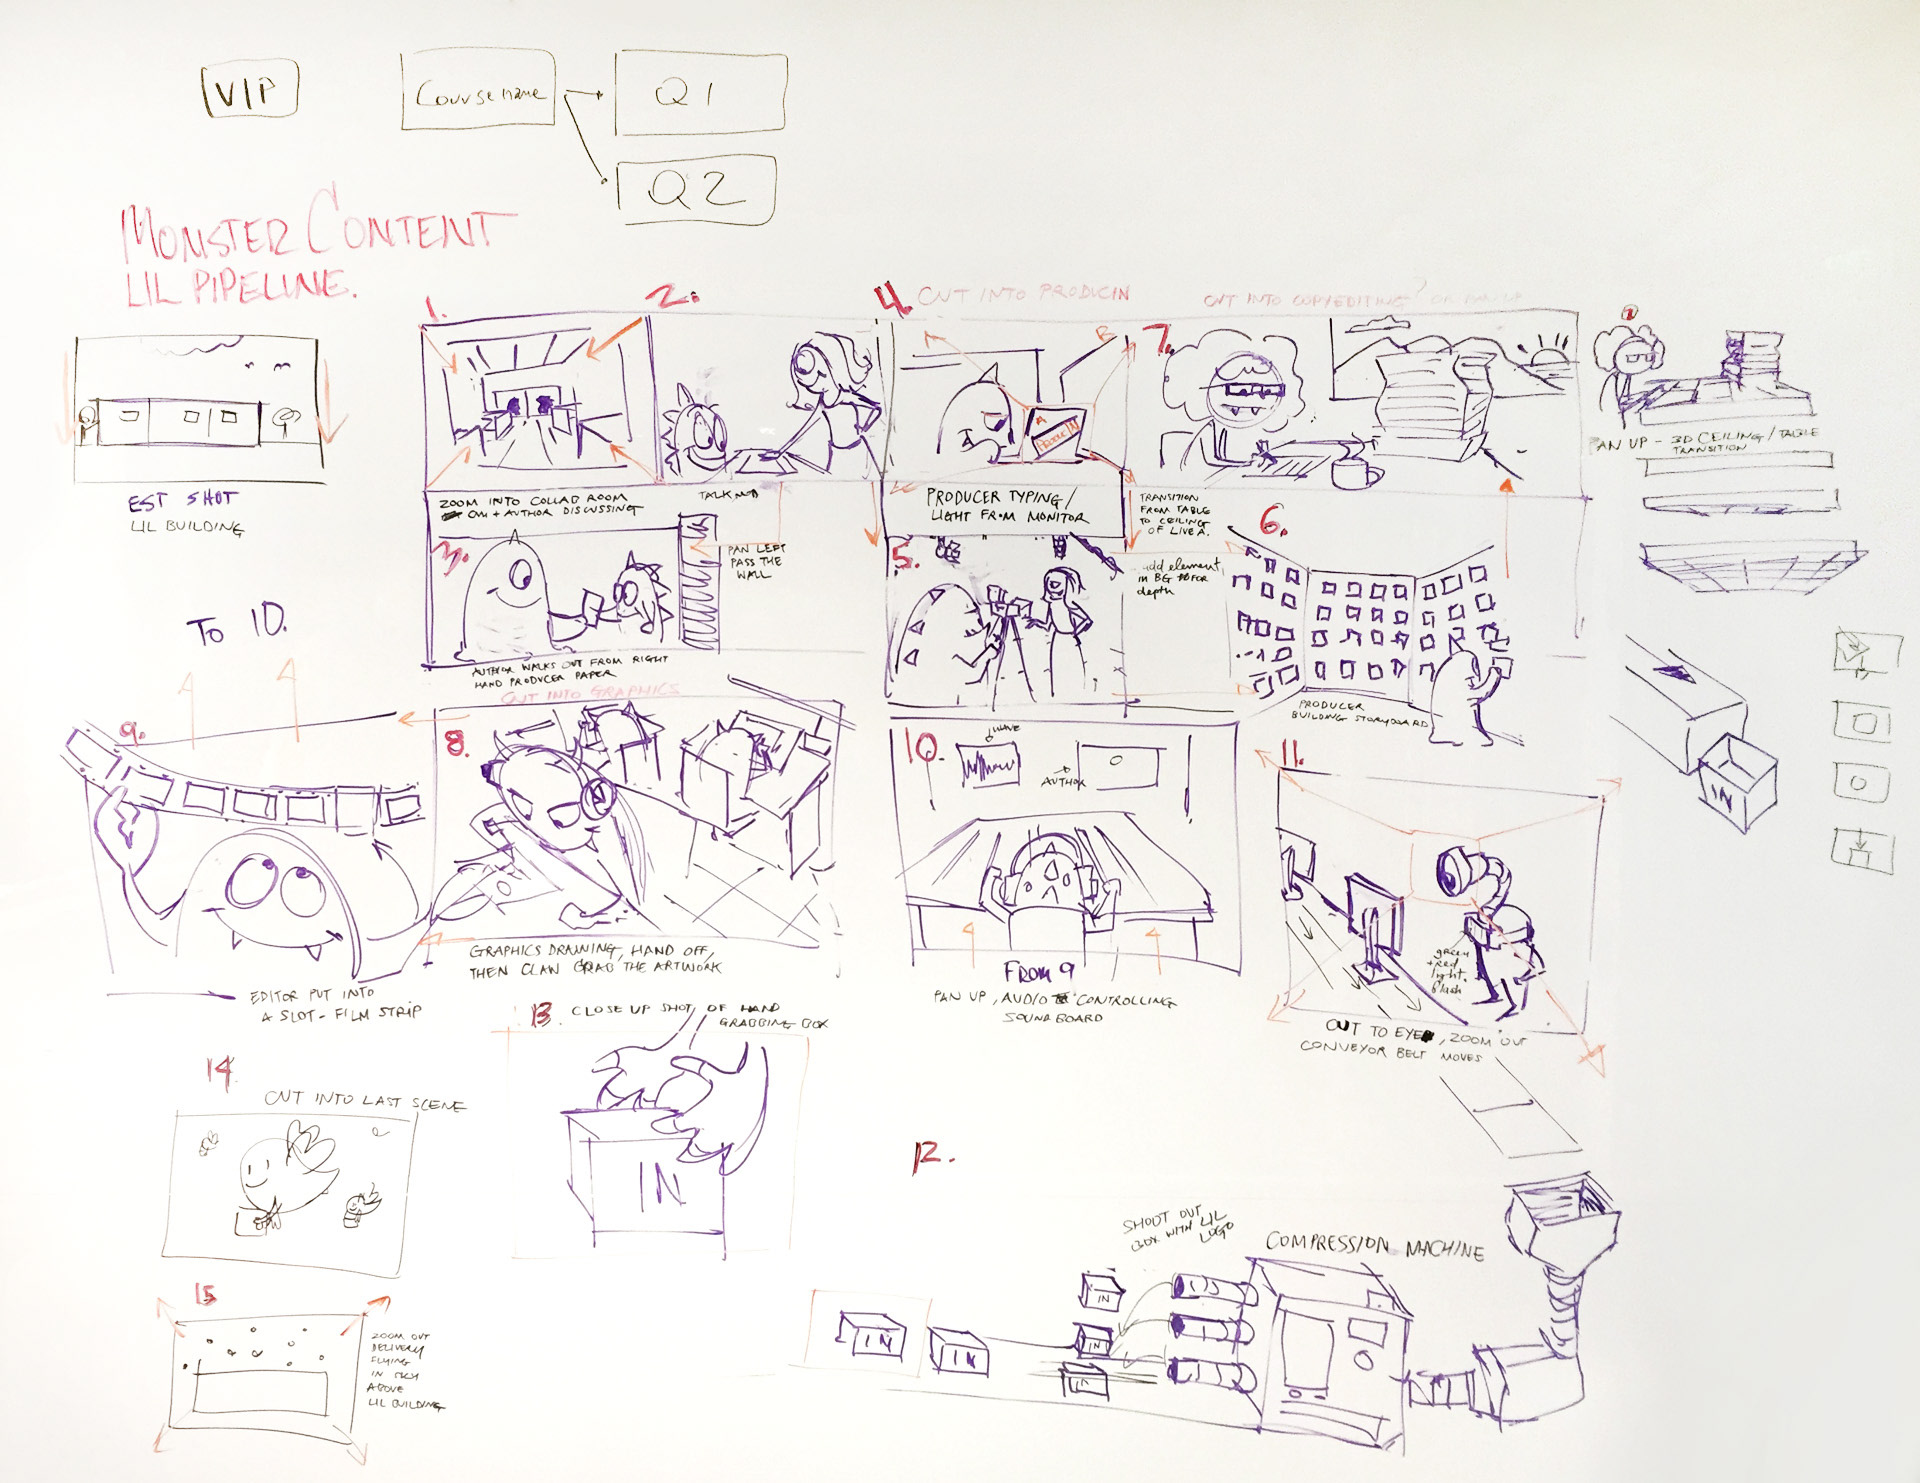 VIP
Course name
Q1
Q2
MONSTER CONTENT
LIL PIPELINE.
EST SHOT
LIL BUILDING
1.
2.
ZOOM INTO COLLAB ROOM
AUTHOR DISCUSSING
3.
PAN LEFT
PASS THE
WALL
AUTHOR WALKS OUT FROM RIGHT
HAND PRODUCER PAPER
4.
CUT INTO PRODUCIN
PRODUCER TYPING/
LIGHT FROM MONITOR
TRANSITION
FROM TABLE
TO CEILING
OF LIVE A.
5.
add element
in BG for
depth
6.
PRODUCER
BUILDING STORYBOARD
7.
CUT INTO COPYEDITING
PAN UP - 3D CEILING/TABLE
TRANSITION
IN
CUT INTO GRAPHICS
8.
GRAPHICS DRAWING, HAND OFF,
THEN CLAW GRAB THE ARTWORK
TO 10.
9.
EDITOR PUT INTO
A SLOT - FILM STRIP
10.
WAVE
AUTHOR
FROM 9
PAN UP, AUDIO CONTROLLING
SOUNDBOARD
11.
green
+ red
light
flash
CUT TO EYE, ZOOM OUT
CONVEYOR BELT MOVES
12.
SHOOT OUT
BOX WITH LIL
LOGO
COMPRESSION MACHINE
IN
IN
IN
IN
IN
13.
CLOSE UP SHOT OF HAND
GRABBING BOX
IN
14
CUT INTO LAST SCENE
15
ZOOM OUT
DELIVERY
FLYING
IN SKY
ABOVE
LIL BUILDING